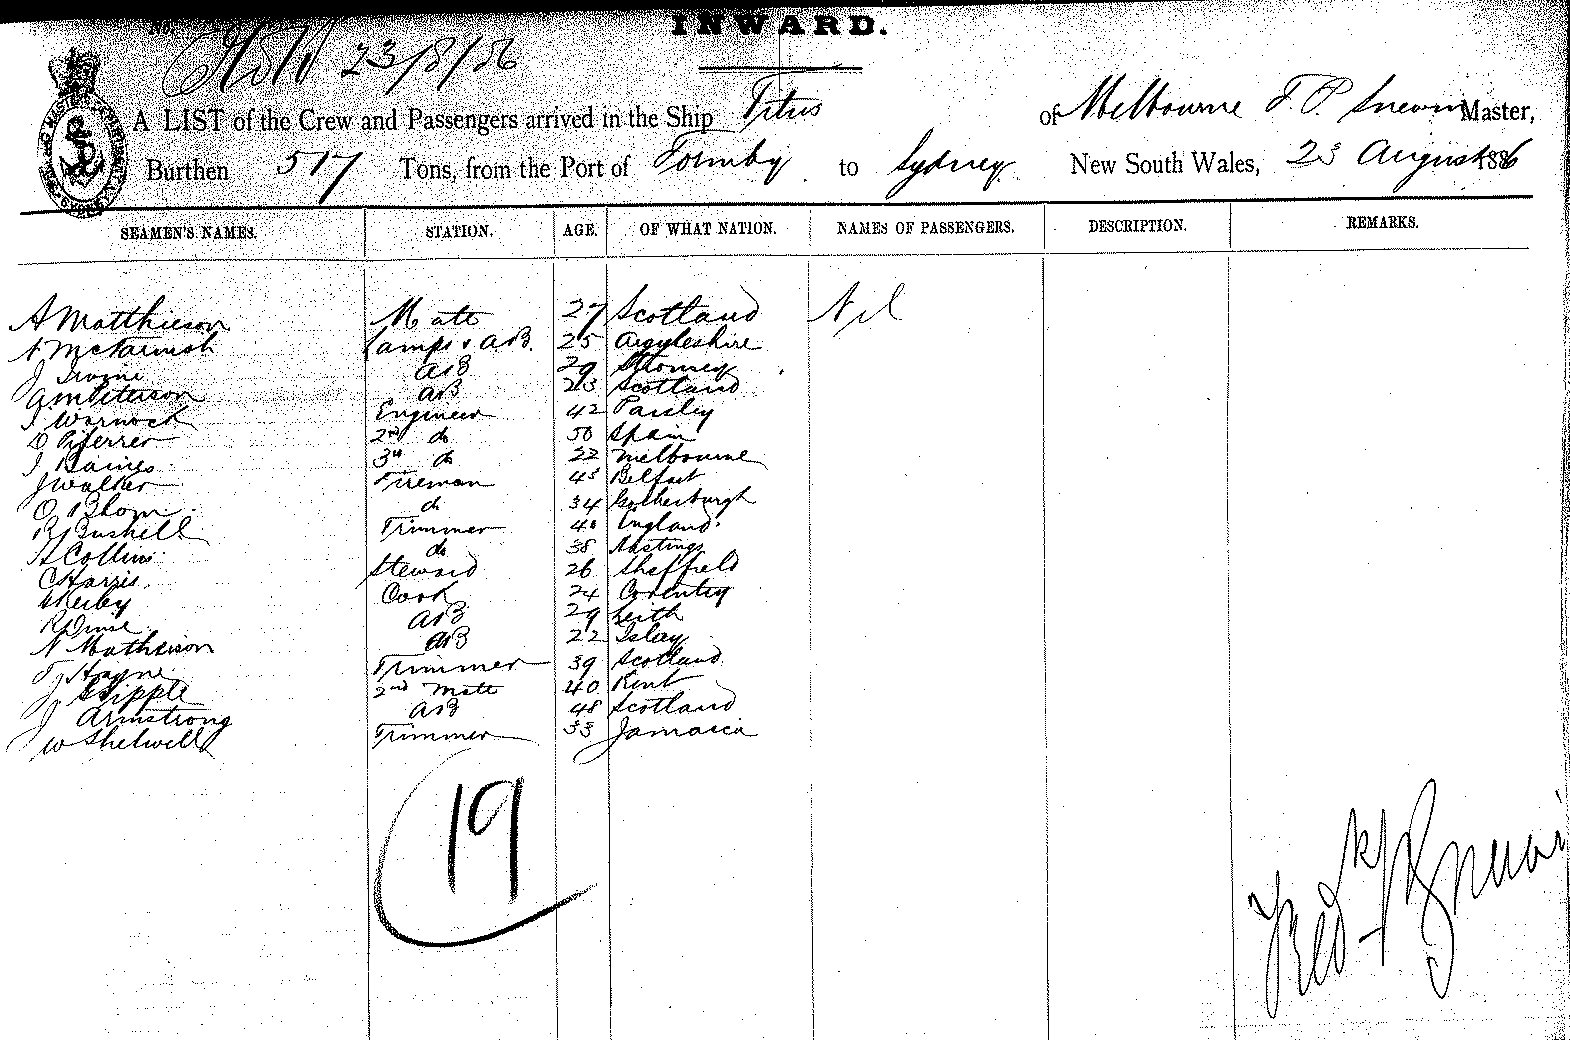 INWARD.
23/8/86
A LIST of the Crew and Passengers arrived in the Ship Titus of Melbourne F. P. Master,
Burthen 517 Tons, from the Port of Formby to Sydney New South Wales, 23 August 1886
SEAMEN'S NAMES. STATION. AGE. OF WHAT NATION. NAMES OF PASSENGERS. DESCRIPTION. REMARKS.
A Matthieson Mate 27 Scotland Nil
Lamps & AB. 25 Argyleshire
J Irvine AB 29
AB 23 Scotland
J Warnock Engineer 42 Paisley
D Piferrer 2nd do 50 Spain
J Baines 3rd do 22 Melbourne
J Walker Fireman 43 Belfast
O Blom do 34
R Bushell Trimmer 40 England
H Collins do 38 Hastings
C Harris Steward 26 Sheffield
Kerby Cook 24 Coventry
R AB 29 Leith
N Mathieson AB 22 Islay
T Hayne Trimmer 39 Scotland
J 2nd Mate 40 Kent
J Armstrong AB 48 Scotland
W Shelwell Trimmer 33 Jamaica
19
Fredk